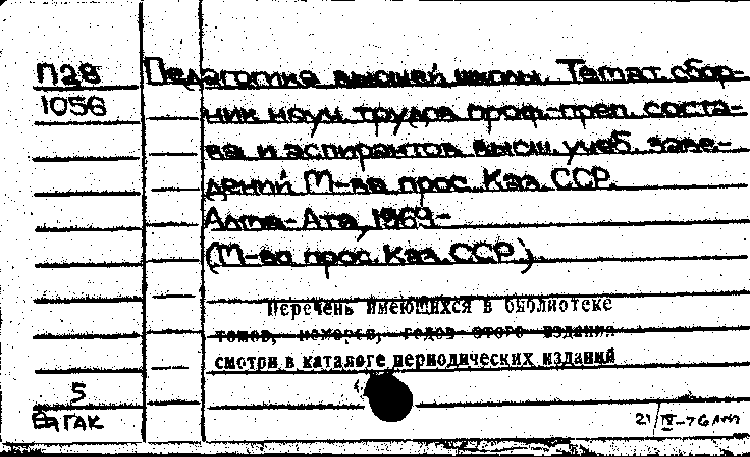 П28
1056
Педагогика высшей школы. Темат. сбор-
ник науч. трудов проф.-преп. соста-
ва и аспирантов высш. учеб. заве-
дений М-ва прос. Каз. ССР.
Алма-Ата, 1969-
(М-во прос. Каз. ССР).
Перечень имеющихся в библиотеке
томов, номеров, годов этого издания
смотри в каталоге периодических изданий
5
ГАК
21/IV-76